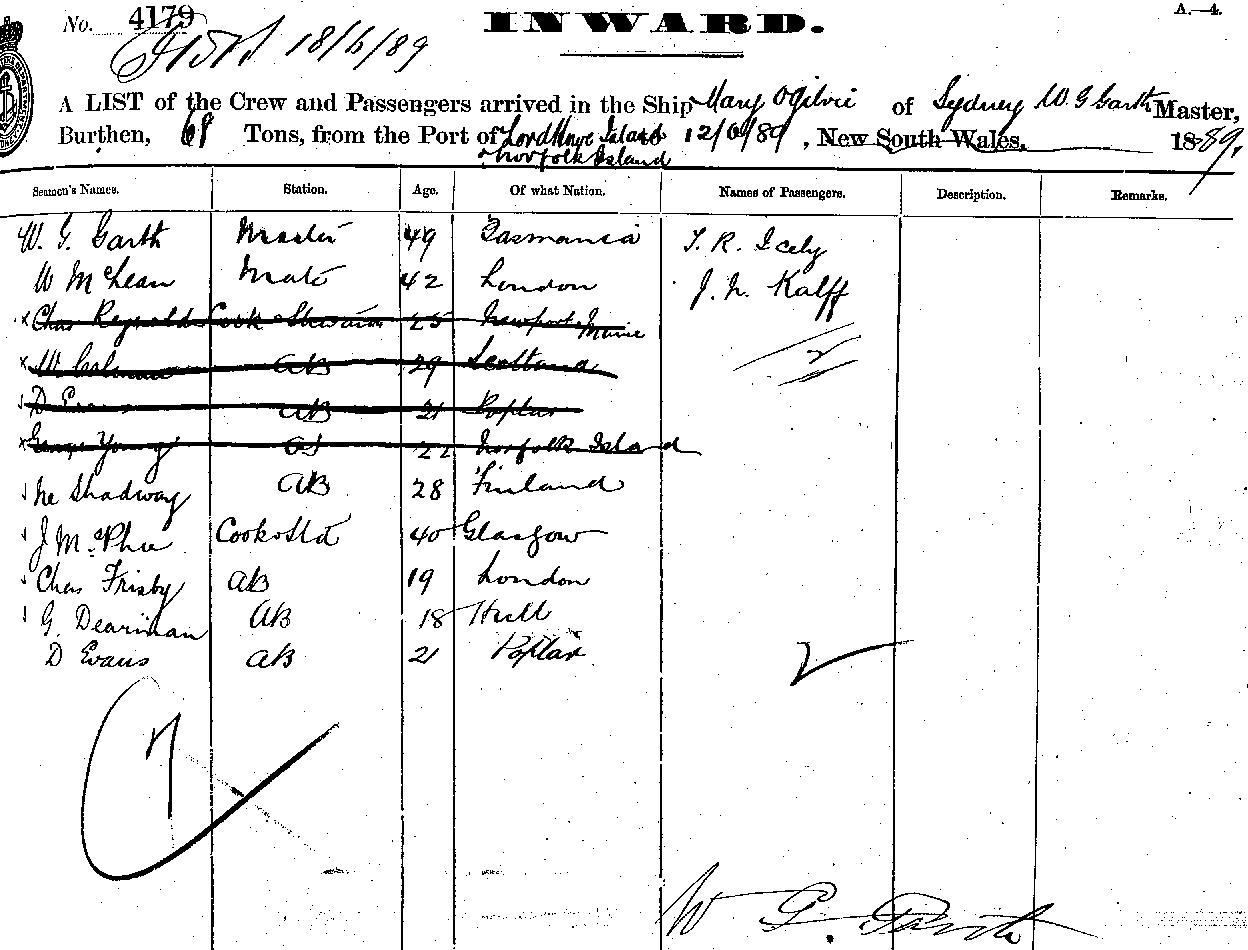 No. 4179 INWARD. A.—4.
18/6/89
A LIST of the Crew and Passengers arrived in the Ship Mary Ogilvie of Sydney W. G Garth Master,
Burthen, 68 Tons, from the Port of Lord Howe Island 12/6/89, New South Wales, 1889.
Norfolk Island
Seamen's Names. Station. Age. Of what Nation. Names of Passengers. Description. Remarks.
W. G. Garth Master 49 Tasmania T. R. Icely
W McLean Mate 42 London J. N. Kalff
x Chas Reynolds Cook Steward 25 Newport Maine
x W Coleman AB 29 Scotland 2
D Evans AB 21 Poplar
x George Young OS 22 Norfolk Island
Shadway AB 28 Finland
J McPhee Cook & Std 40 Glasgow
Chas Frisby AB 19 London
G. Dearman AB 18 Hull
D Evans AB 21 Poplar
7
W G. Garth